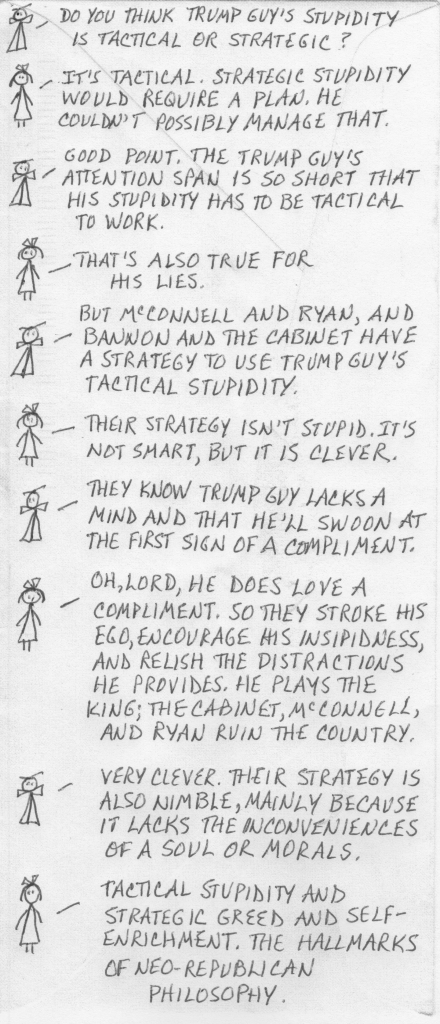 DO YOU THINK TRUMP GUY'S STUPIDITY
IS TACTICAL OR STRATEGIC?
IT'S TACTICAL. STRATEGIC STUPIDITY
WOULD REQUIRE A PLAN. HE
COULDN'T POSSIBLY MANAGE THAT.
GOOD POINT. THE TRUMP GUY'S
ATTENTION SPAN IS SO SHORT THAT
HIS STUPIDITY HAS TO BE TACTICAL
TO WORK.
THAT'S ALSO TRUE FOR
HIS LIES.
BUT MCCONNELL AND RYAN, AND
BANNON AND THE CABINET HAVE
A STRATEGY TO USE TRUMP GUY'S
TACTICAL STUPIDITY.
THEIR STRATEGY ISN'T STUPID. IT'S
NOT SMART, BUT IT IS CLEVER.
THEY KNOW TRUMP GUY LACKS A
MIND AND THAT HE'LL SWOON AT
THE FIRST SIGN OF A COMPLIMENT.
OH, LORD, HE DOES LOVE A
COMPLIMENT. SO THEY STROKE HIS
EGO, ENCOURAGE HIS INSIPIDNESS,
AND RELISH THE DISTRACTIONS
HE PROVIDES. HE PLAYS THE
KING; THE CABINET, MCCONNELL,
AND RYAN RUIN THE COUNTRY.
VERY CLEVER. THEIR STRATEGY IS
ALSO NIMBLE, MAINLY BECAUSE
IT LACKS THE INCONVENIENCES
OF A SOUL OR MORALS.
TACTICAL STUPIDITY AND
STRATEGIC GREED AND SELF-
ENRICHMENT. THE HALLMARKS
OF NEO-REPUBLICAN
PHILOSOPHY.